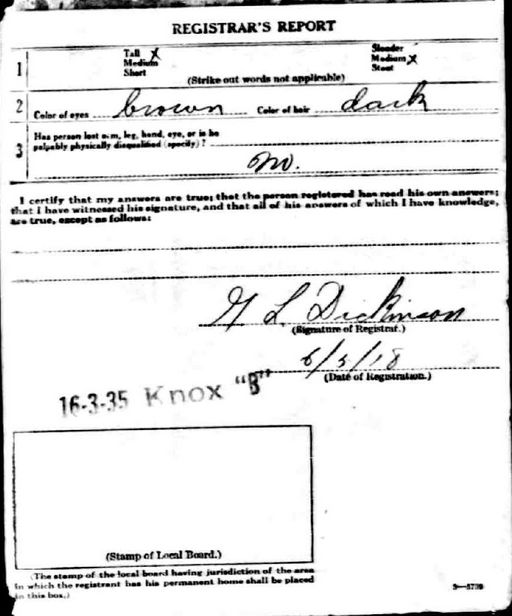 REGISTRAR'S REPORT
1 Tall X Slender
Medium Medium X
Short Stout
(Strike out words not applicable)
2 Color of eyes brown Color of hair dark
3 Has person lost arm, leg, hand, eye, or is he
palpably physically disqualified (specify)?
no.
I certify that my answers are true; that the person registered has read his own answers;
that I have witnessed his signature, and that all of his answers of which I have knowledge,
are true, except as follows:
L Dickinson
(Signature of Registrar.)
6/5/18
(Date of Registration.)
16-3-35 Knox "B"
(Stamp of Local Board.)
(The stamp of the local board having jurisdiction of the area
in which the registrant has his permanent home shall be placed
in this box.)